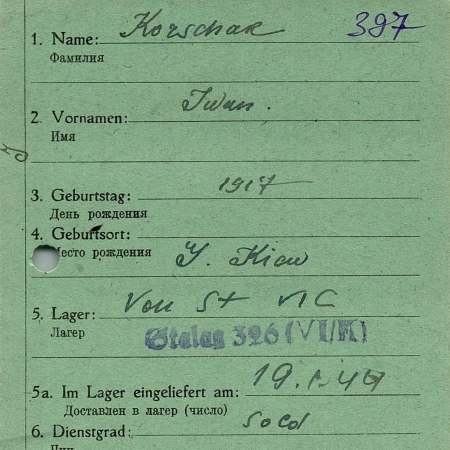 397
1. Name: Korschak
Фамилия
2. Vornamen: Iwan.
Имя
3. Geburtstag: 1917
День рождения
4. Geburtsort:
Место рождения Kiew
5. Lager: Von St VI C
Лагер
Stalag 326 (VI/K)
5a. Im Lager eingeliefert am: 19.
Доставлен в лагер (число)
6. Dienstgrad: Sold